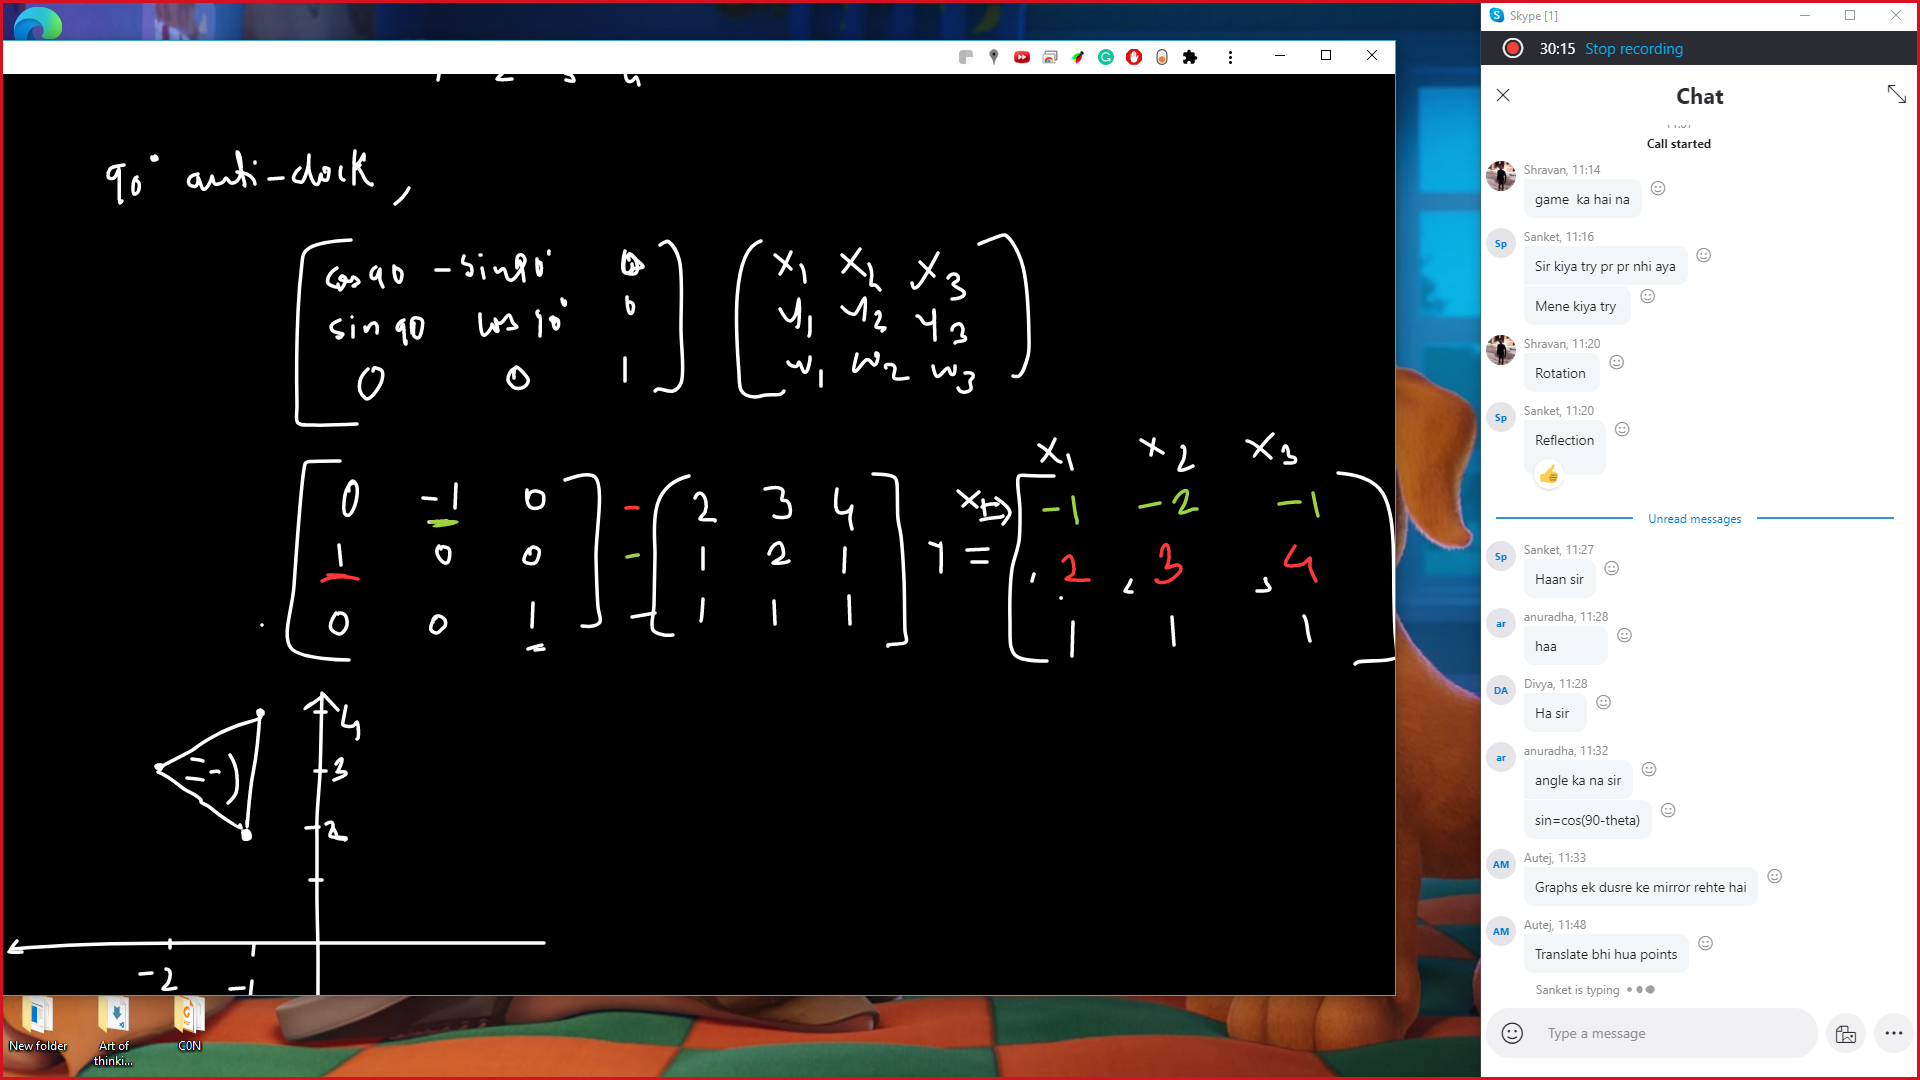 90° anti-clock,
cos 90 -sin 90° 0
sin 90 cos 90° 0
0 0 1
x1 x2 x3
y1 y2 y3
w1 w2 w3
x1 x2 x3
0 -1 0
1 0 0
0 0 1
2 3 4
1 2 1
1 1 1
=
-1 -2 -1
, 2 , 3 , 4
1 1 1
4
3
2
-2 -1
New folder
Art of
thinki...
C0N
Skype [1]
30:15 Stop recording
Chat
11:07
Call started
Shravan, 11:14
game ka hai na
Sp
Sanket, 11:16
Sir kiya try pr pr nhi aya
Mene kiya try
Shravan, 11:20
Rotation
Sp
Sanket, 11:20
Reflection
Unread messages
Sp
Sanket, 11:27
Haan sir
ar
anuradha, 11:28
haa
DA
Divya, 11:28
Ha sir
ar
anuradha, 11:32
angle ka na sir
sin=cos(90-theta)
AM
Autej, 11:33
Graphs ek dusre ke mirror rehte hai
AM
Autej, 11:48
Translate bhi hua points
Sanket is typing
Type a message